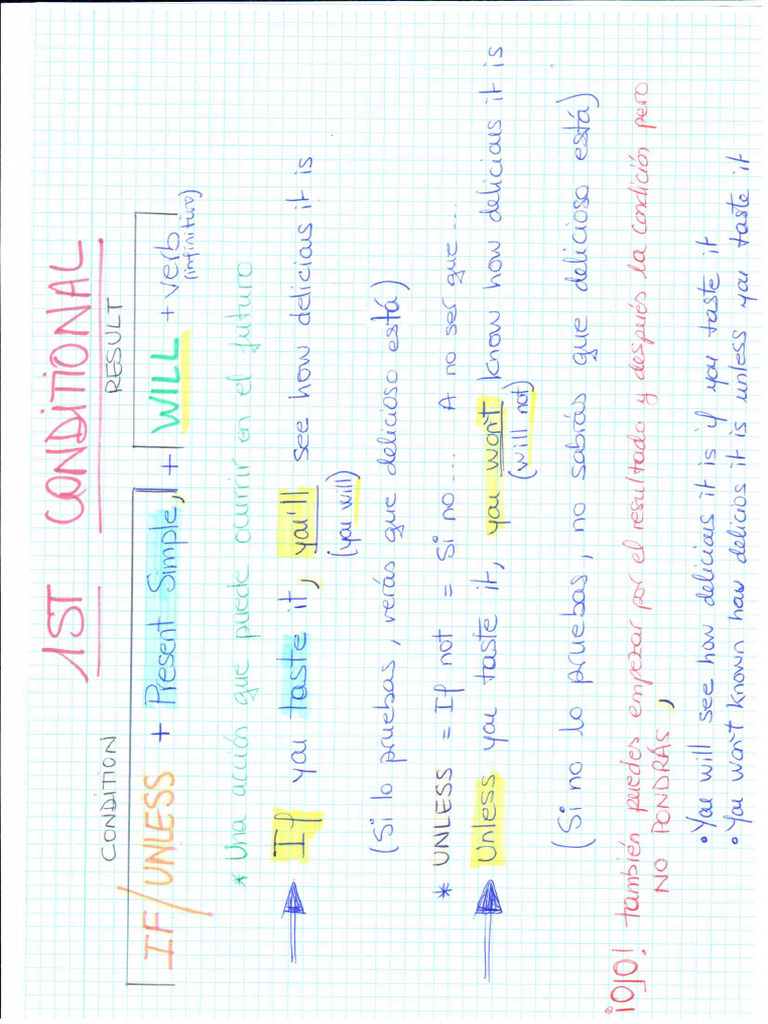 1ST CONDITIONAL
CONDITION RESULT
IF/UNLESS + Present Simple, + WILL + verb
(infinitivo)
* Una acción que puede ocurrir en el futuro
If you taste it, you'll see how delicious it is
(you will)
(Si lo pruebas, verás que delicioso está)
* UNLESS = If not = Si no... A no ser que...
Unless you taste it, you won't know how delicious it is
(will not)
(Si no lo pruebas, no sabrás que delicioso está)
¡OJO! también puedes empezar por el resultado y después la condición pero
NO PONDRÁS ,
• You will see how delicious it is if you taste it
• You won't known how delicios it is unless you taste it